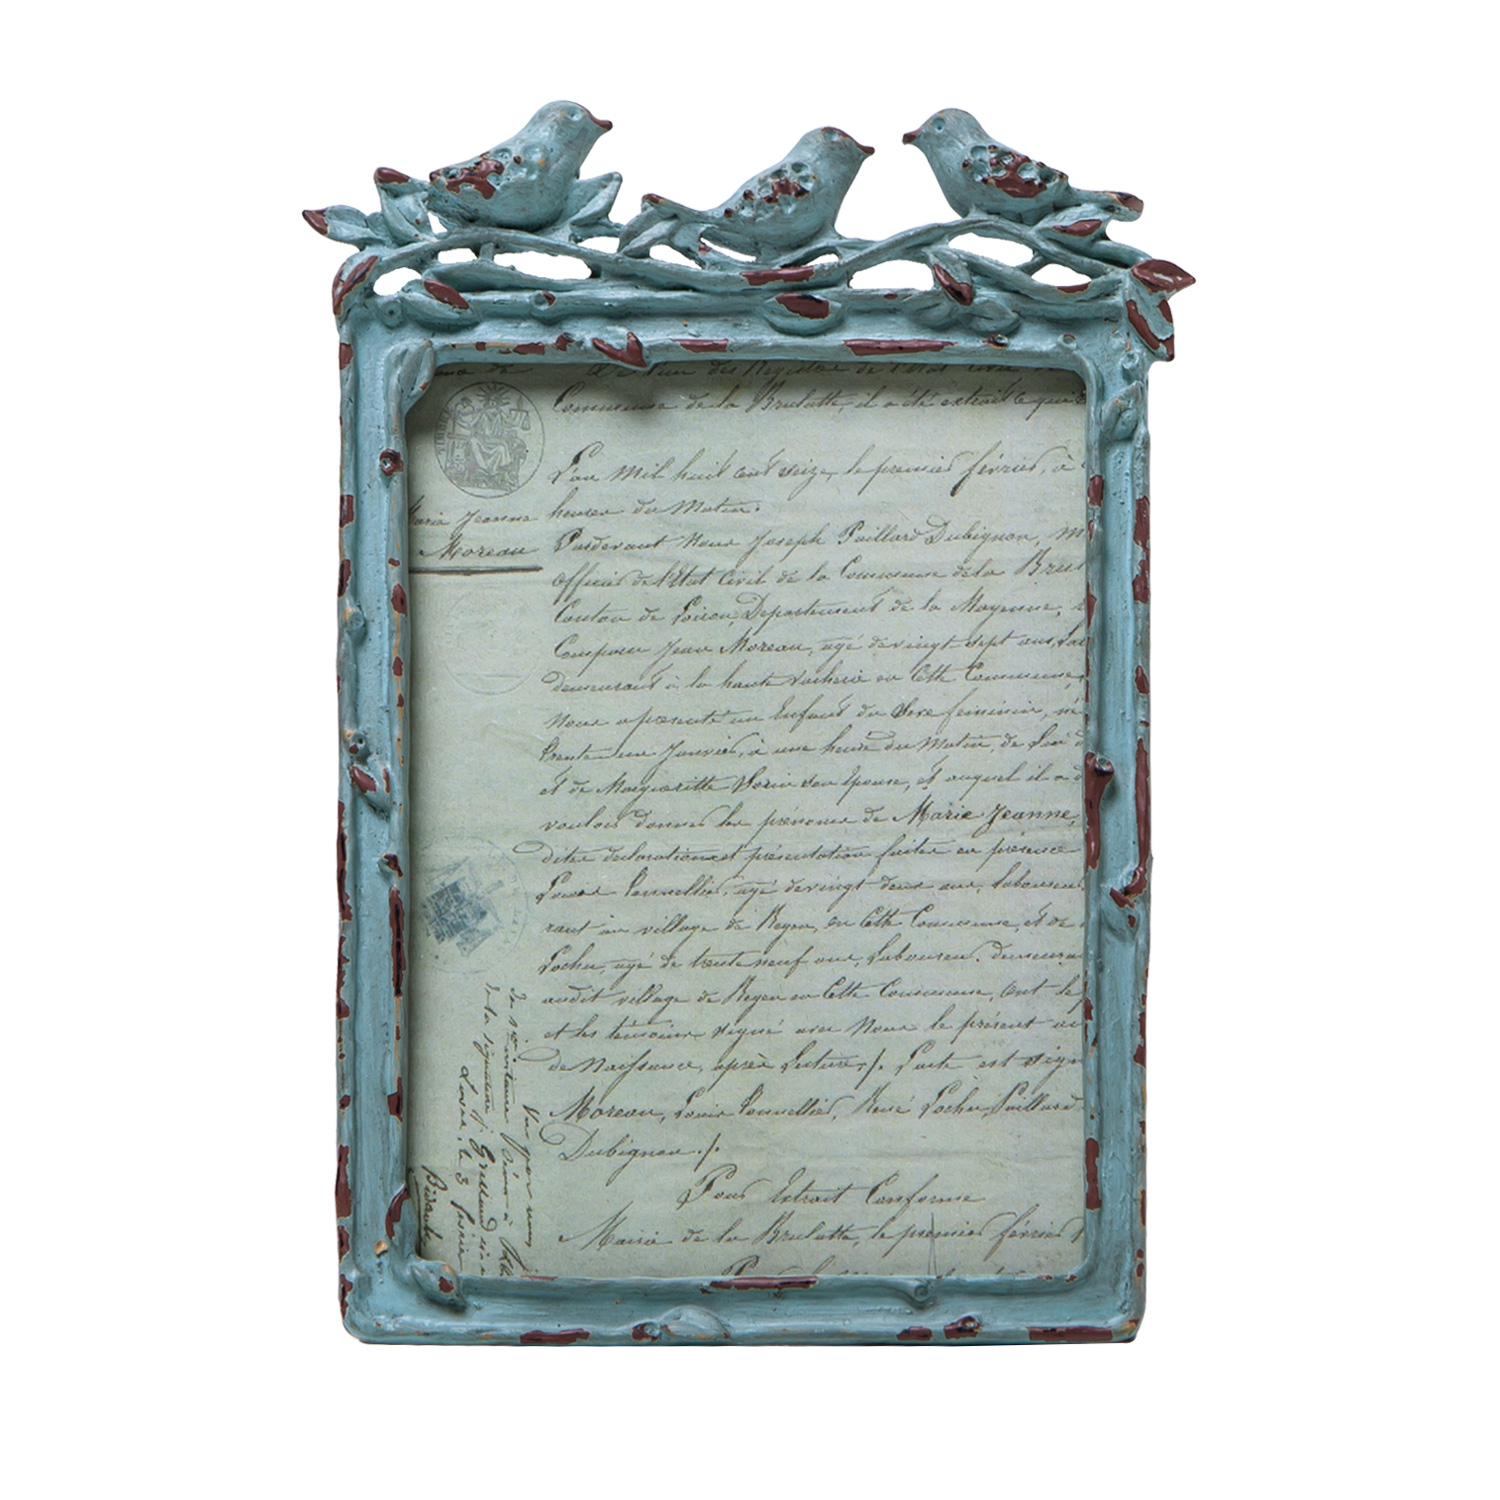 des Registres de l'Etat Civil
Commune de la Brulatte, il a été extrait ce qui
L'an mil huit cent seize, le premier février, à
heures du Matin.
Marie Jeanne
Moreau
Pardevant Nous Joseph Paillard Dubignon, M
officier de l'Etat Civil de la Commune de la Brul
Canton de Loiron, Departement de la Mayenne,
Comparu Jean Moreau, agé de vingt sept ans, La
demeurant à la haute vacherie en Cette Commune,
Nous a présenté un Enfant du Sexe feminin, né
trente un Janvier, à une heure du Matin, de Lui d
et de Marguerite son Epouse, et auquel il a d
vouloir donner les prénoms de Marie Jeanne,
dites declaration et présentation faites en présence
agé de vingt deux ans, laboureur
rant au village de en Cette Commune, et de
Locher, agé de trente neuf ans, Laboureur, demeura
audit village de en Cette Commune, ont le
et les témoins signé avec Nous le présent ac
de Naissance, après Lecture /. L'acte est sign
Moreau, Louis René Locher, Paillard
Dubignon ./.
Pour Extrait Conforme
Mairie de la Brulatte, le premier février
Vu par nous
de la signature
Bidault